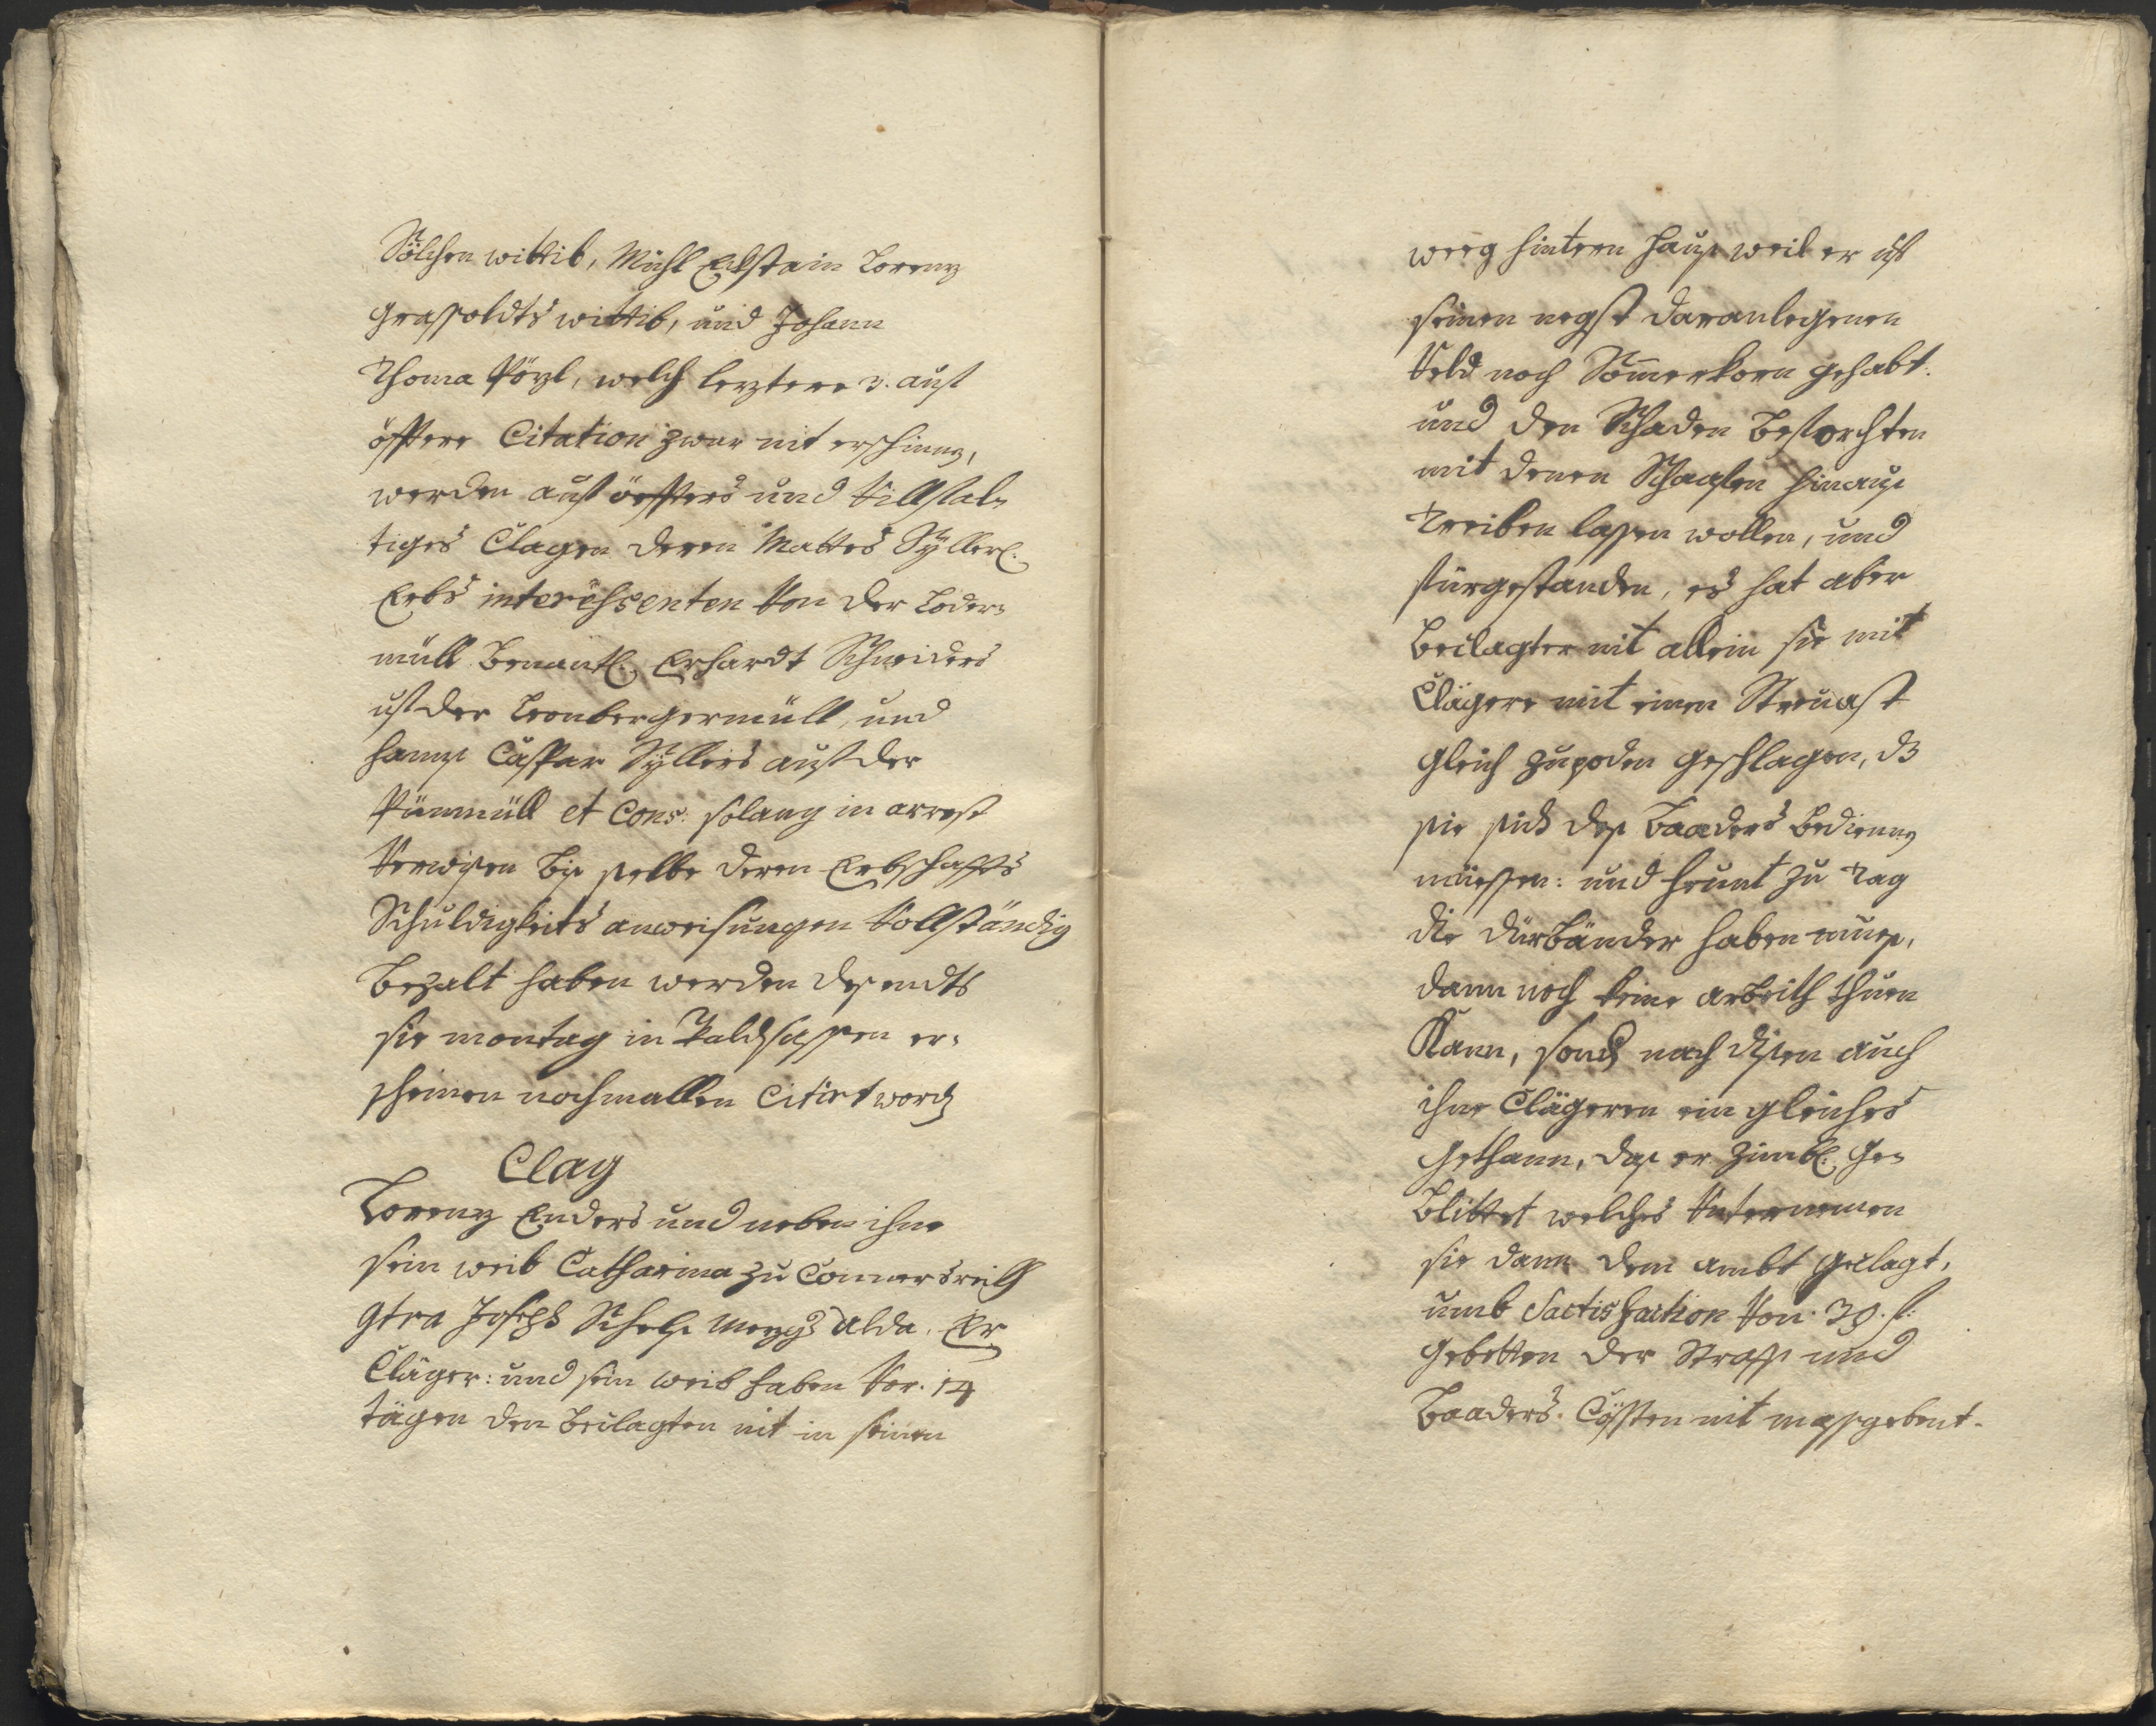 Sölchen wittib, Michl Ecklstain Lorenz
Graßoldts wittib, und Johann
Thoma Pözl, welch leztere 3. auf
öfftere Citation zwar nit erschinen,
werden auf öffters und villfäl-
tiges Clagen deren Mattes Syllerl.
Erbs interessenten von der Loder-
müll Benantl. Erhardt Schneiders
uf der Leonbergermüll, und
Hannß Caspar Syllers auf der
Pünmüll et Cons: solang in arrest
verwisen biß selbe deren Erbschaffts
Schuldigkeits anweisungen vollständig
Bezalt haben werden des endts
sie montag in Waldsassen er-
scheinen nochmallen Citirt word.
Clag
Lorenz Enders und neben ihne
sein weib Catharina zu Connersreith
Ctra Joseph Schels Mezgs alda. Er
Cläger: und sein weib haben vor. 14
tägen den Beclagten nit in seinen
weeg hintern Hauß weil er uf
seinen negst daranlegenen
Veld noch Sommerkorn gehabt.
und den Schaden Beforchten
mit denen Schaafen hinauß
Treiben lassen wollen, und
fürgestanden, es hat aber
Beclagter nit allein sie mit
Clägere mit einen Streuast
gleich zupoden geschlagen, dz
sie sich deß Baaders bedienen
müessen: und heunt zu Tag
die dürbänder haben mueß,
dann noch keine arbeith thuen
Kann, sond. nach disen auch
ihne Clägeren ein gleiches
Gethann, daß er zimbl. Ge-
Blüttet welches Unternemen
sie dann dem ambt geclagt,
umb Sactisfaction von 30. f:
Gebetten der Straff und
Baaders. Cössten nit massgebent.